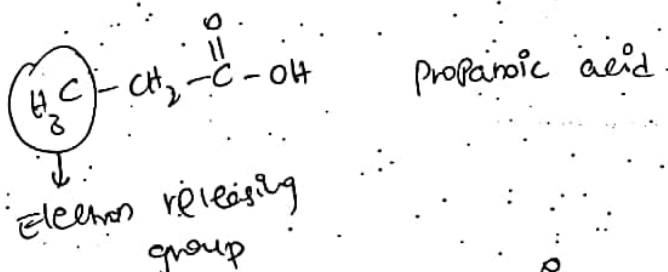 O
||
H₃C - CH₂ - C - OH Propanoic acid.
Electron releasing
group
O